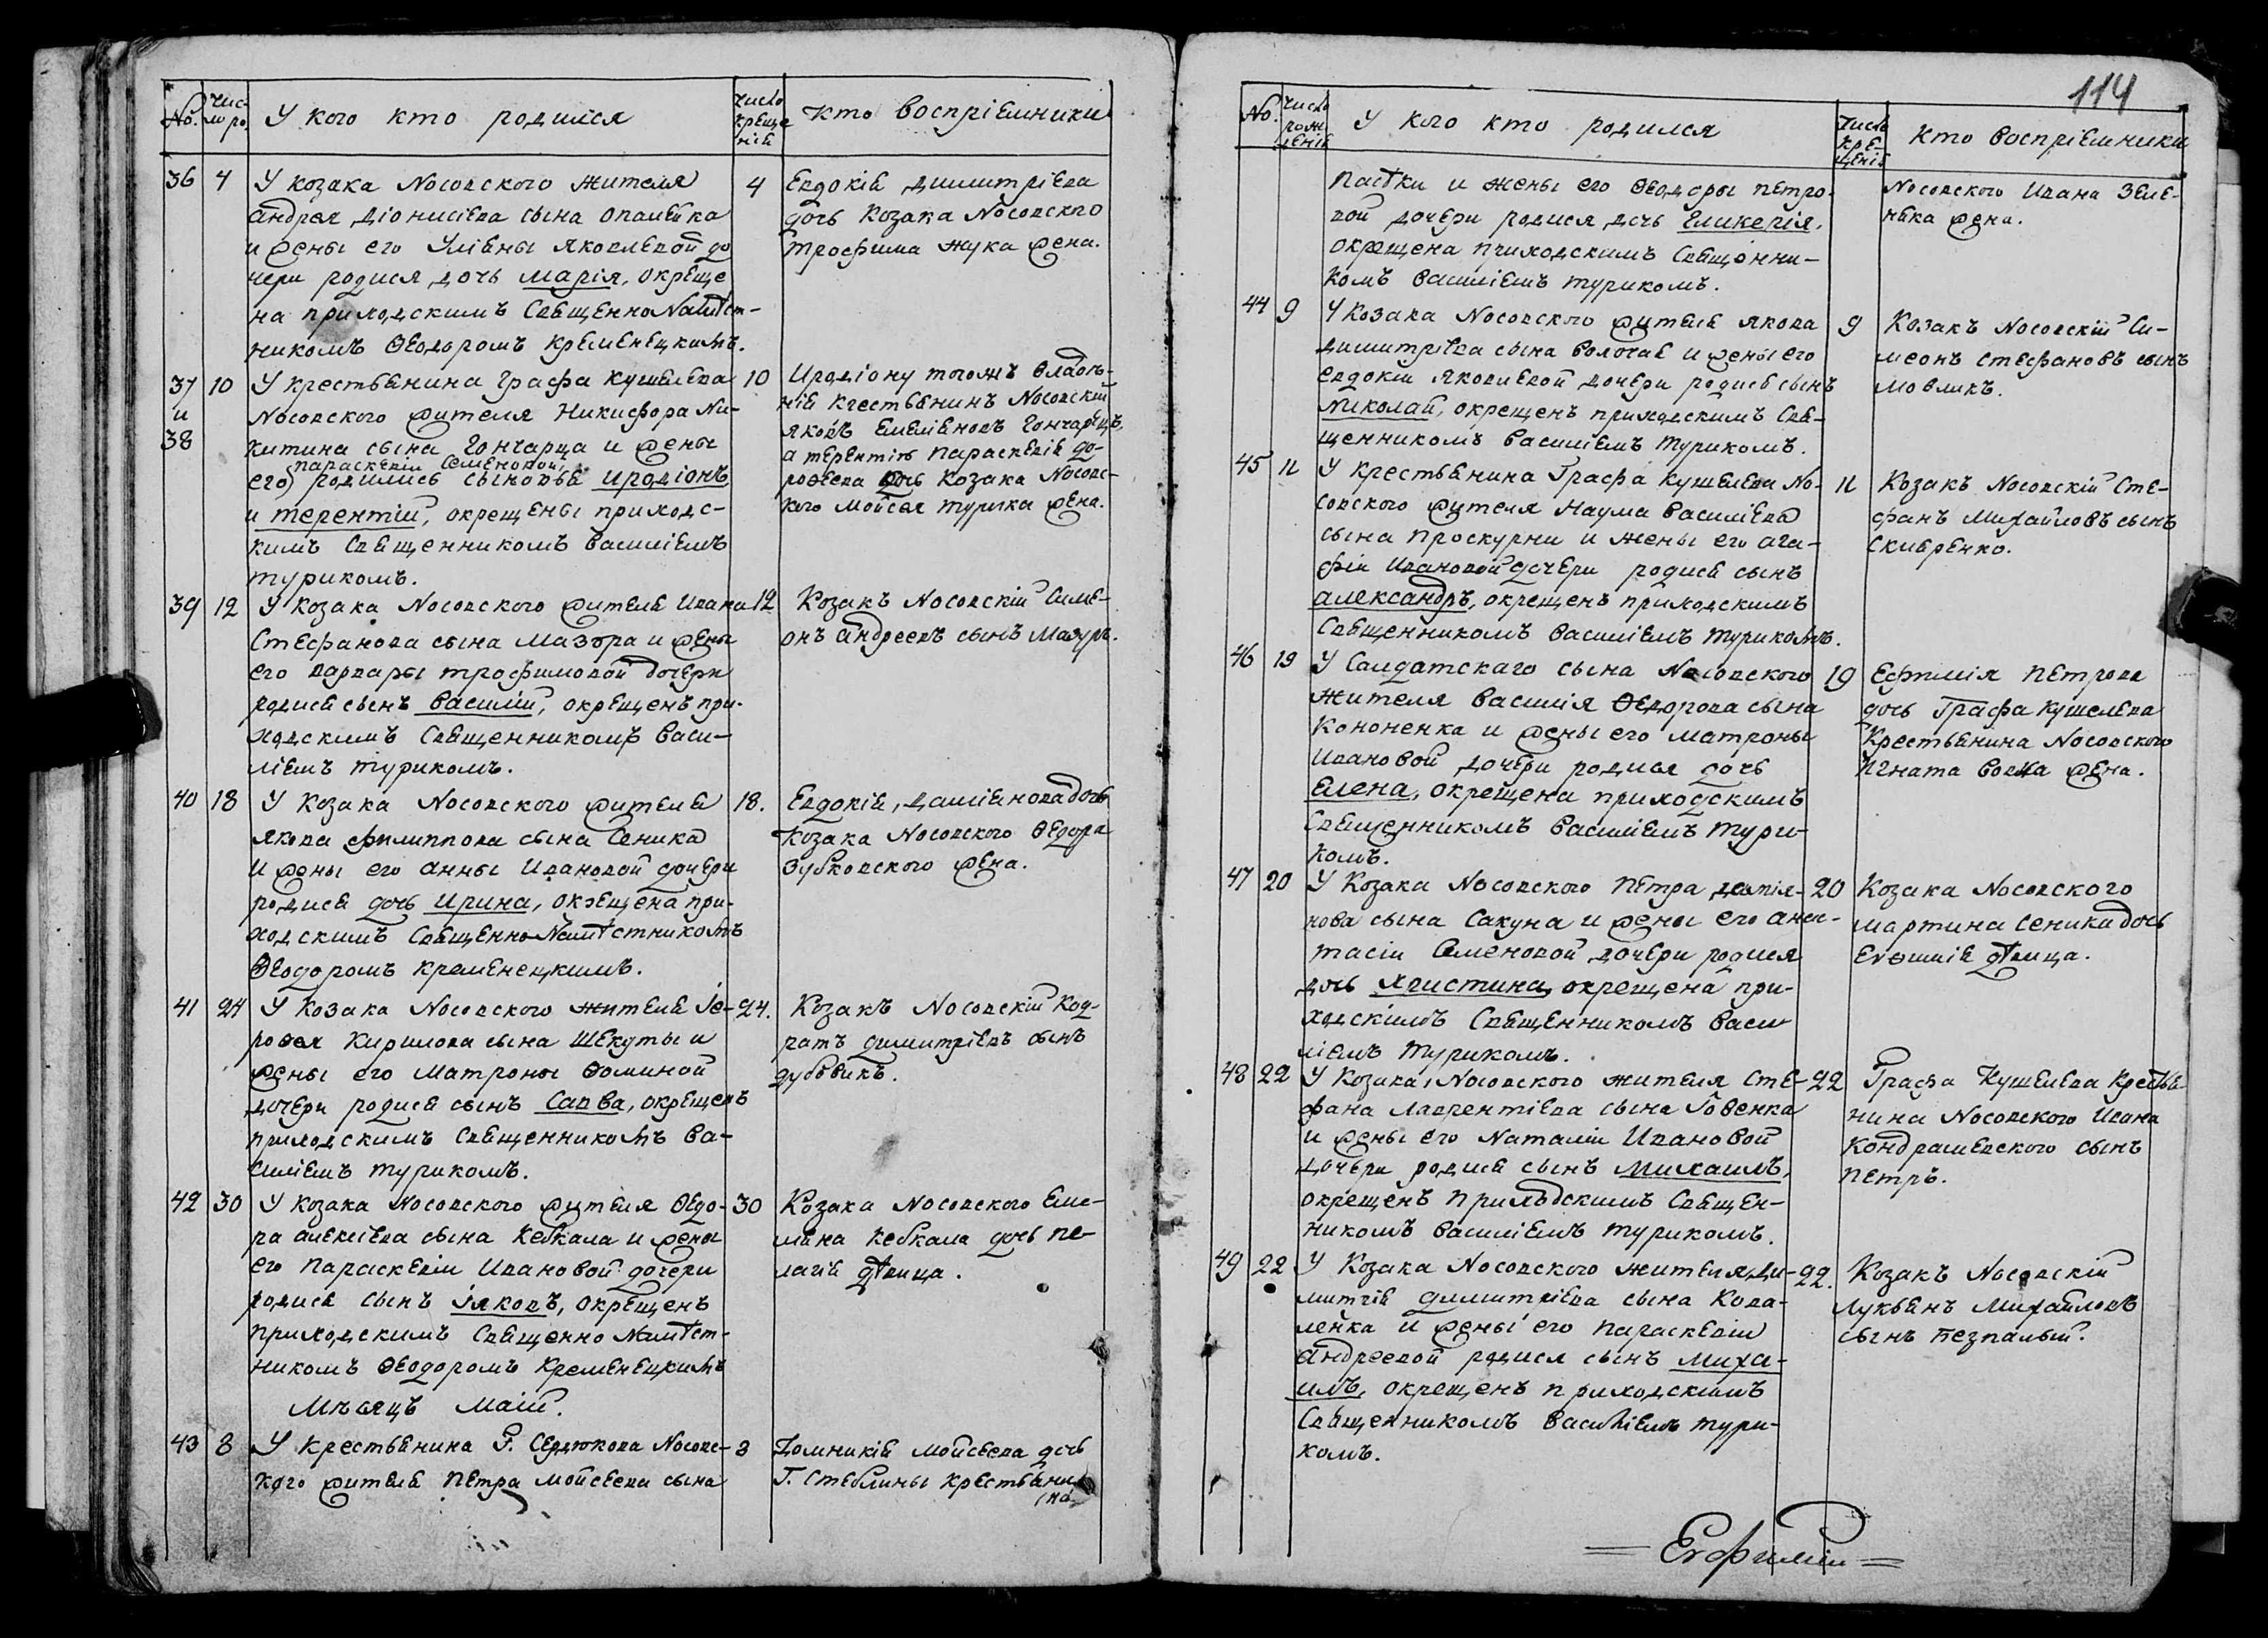 No.
Чис-
ло ро.
У кого кто родился
число
креще
нія
кто воспріемники
36 4 У козака Носовского жителя 4
андрея діонисіева сына опалейка
и жены его Уліяны Яковлевой до
чери родися дочь марія, окреще
на приходскимъ Священнонамѣст-
никомъ Ѳеодоромъ Кременецкимъ.
Евдокія димитріева
дочь козака Носовского
трофима жука жена.
37 10 У крестьянина Графа кушелева 10
и Носовского жителя Никифора Ни-
38 китина сына Гончарца и жены
параскевіи Семеновой,
его родились сыновья иродіонъ
и терентій, окрещены приходс-
кимъ Священникомъ василіемъ
туриком.
Иродіону тогожъ владѣ-
нія крестьянинъ Носовскій
яковъ емеліяновъ гончарецъ,
а терентію параскевія до-
роѳеева дочь козака Носовс-
кого мойсея турика жена.
39 12 У козака Носовского жителя Ивана 12
Стефанова сына Мазора и жены
его варвары трофимовой дочери
родися сынъ василій, окрещенъ при-
ходскимъ Священникомъ васи-
ліемъ туриком.
Козакъ Носовскій Симе-
онъ андреевъ сынъ мазуръ.
40 18 У козака Носовского жителя 18.
якова филиппова сына Сеника
и жены его анны Ивановой дочери
родися дочь ирина, окрещена при-
ходскимъ Священнонамѣстникомъ
Ѳеодоромъ кременецкимъ.
Евдокія, даміянова дочь
козака Носовского Ѳедора
Зубковского жена.
41 24 У козака Носовского жителя Іе- 24.
роѳея Кирилова сына Шекуты и
жены его матроны Ѳоминой
дочери родися сынъ Савва, окрещенъ
приходскимъ Священникомъ ва-
силіемъ туриком.
Козакъ Носовскій код-
ратъ димитріевъ сынъ
дубовикъ.
42 30 У козака Носовского жителя Ѳедо- 30
ра алексіева сына Кебкала и жены
его параскевіи Ивановой дочери
родися сынъ іяковъ, окрещенъ
приходскимъ Священнонамѣст-
никомъ Ѳеодоромъ Кременецкимъ
Козака Носовского Еме-
ляна кебкала дочь пе-
лагія дѣвица.
Мѣсяцъ маій.
43 8 У крестьянина Г. Сердюкова Носовс- 8
кого жителя петра мойсеева сына
Домникія мойсеева дочь
Г. Стеблины крестьяни
на
114
No.
число
рож
денія
У кого кто родился
число
кре-
щенія
кто воспріемники
пастки и жены его Ѳеодоры петро-
вой дочери родися дочь Гликерія,
окрещена приходскимъ Священни-
комъ василіемъ туриком.
Носовского Ивана Зеле-
няка жена.
44 9 У козака Носовского жителя якова 9
димитріева сына волочая и жены его
евдокіи яковлевой дочери родися сынъ
николай, окрещенъ приходскимъ Свя-
щенникомъ василіемъ туриком.
Козакъ Носовскій Си-
меонъ стефановъ сынъ
мовликъ.
45 11 У крестьянина Графа кушелева Но- 11
совского жителя Наума василіева
сына проскурни и жены его ага-
фіи Ивановой дочери родися сынъ
александръ, окрещенъ приходскимъ
Священникомъ василіемъ туриком.
Козакъ Носовскій Сте-
фанъ михайловъ сынъ
скибренко.
46 19 У Салдатскаго сына Носовского 19
жителя василія Ѳедорова сына
Кононенка и жены его матроны
Ивановой дочери родися дочь
Елена, окрещена приходскимъ
Священникомъ василіемъ тури-
комъ.
Ефимія петрова
дочь Графа кушелева
крестьянина Носовского
Игната вовка жена.
47 20 У козака Носовского петра даміа- 20
нова сына Сакуна и жены его анас-
тасіи Семеновой дочери родися
дочь христина, окрещена при-
ходскимъ Священникомъ васи
ліемъ туриком.
Козака Носовского
мартина Сеника дочь
Евѳимія дѣвица.
48 22 У козака, Носовского жителя сте- 22
фана лаврентіева сына Говенка
и жены его наталіи Ивановой
дочери родися сынъ михаилъ,
окрещенъ приходскимъ Священ-
никомъ василіемъ туриком.
Графа Кушелева крестья
нина Носовского Ивана
кондрашевского сынъ
петръ.
49 22 У козака Носовского жителя Ди- 22.
митрія димитріева сына Кова-
ленка и жены его параскевіи
андреевой родися сынъ миха-
илъ, окрещенъ приходскимъ
Священникомъ василіемъ тури-
комъ.
Козакъ Носовскій
лукьянъ михайловъ
сынъ безпалый.
Евфиміи